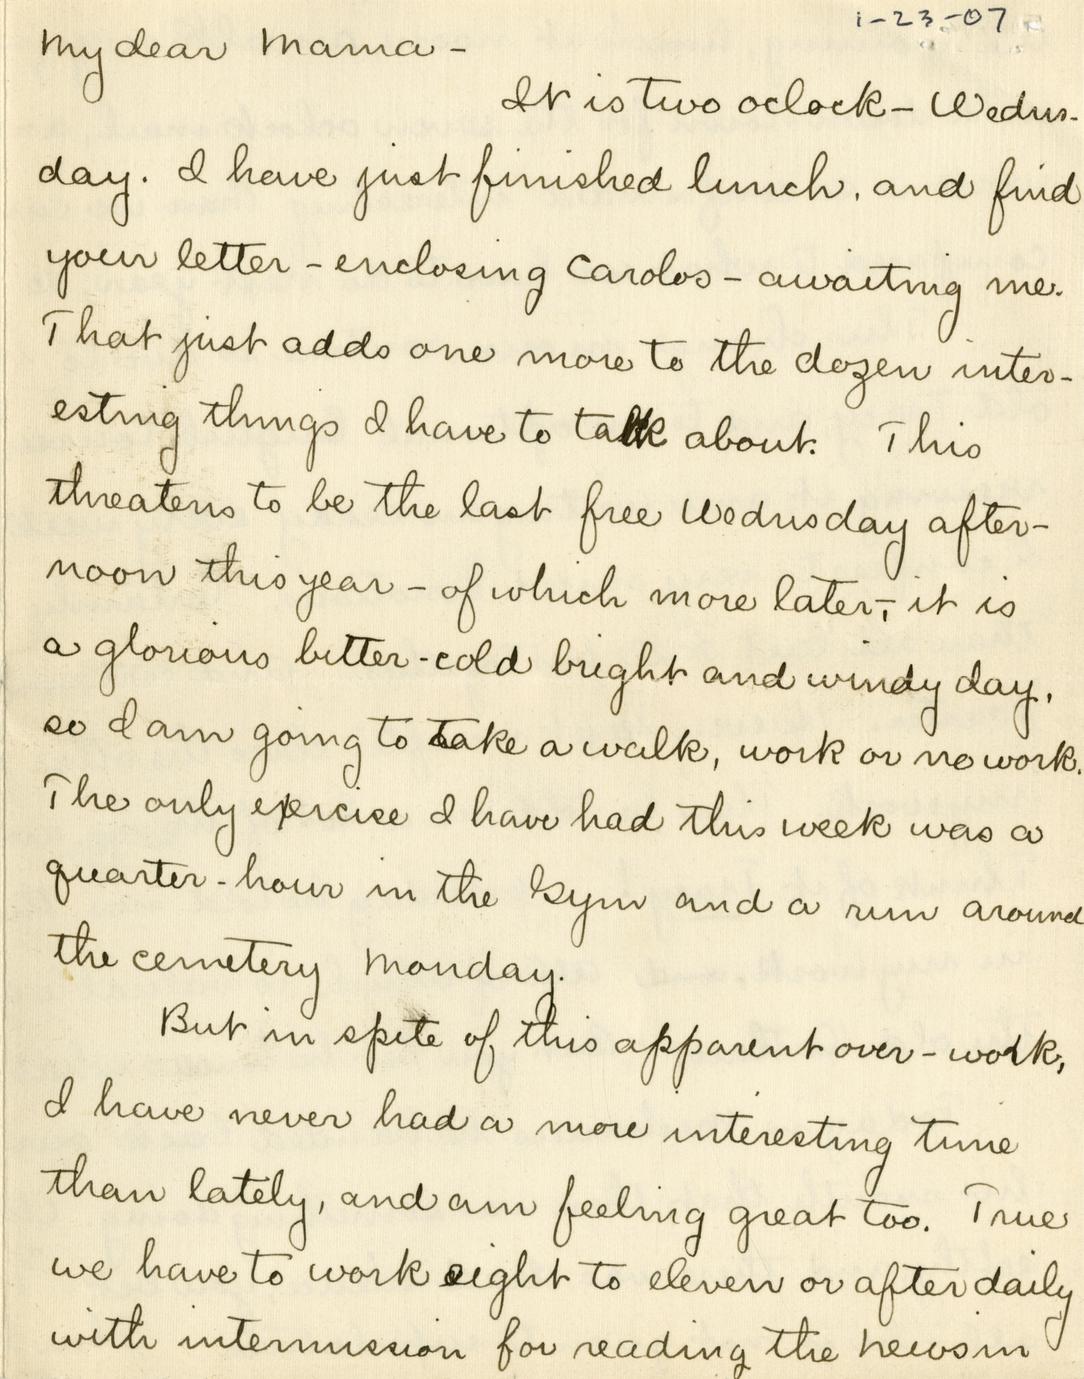 1-23-07
My dear Mama -
It is two oclock - Wednes-
day. I have just finished lunch, and find
your letter - enclosing Carolos - awaiting me.
That just adds one more to the dozen inter-
esting things I have to talk about. This
threatens to be the last free Wednesday after-
noon this year - of which more later -; it is
a glorious bitter-cold bright and windy day,
so I am going to take a walk, work or no work.
The only exercise I have had this week was a
quarter-hour in the Gym and a run around
the cemetery Monday.
But in spite of this apparent over-work,
I have never had a more interesting time
than lately, and am feeling great too. True
we have to work eight to eleven or after daily
with intermission for reading the news in